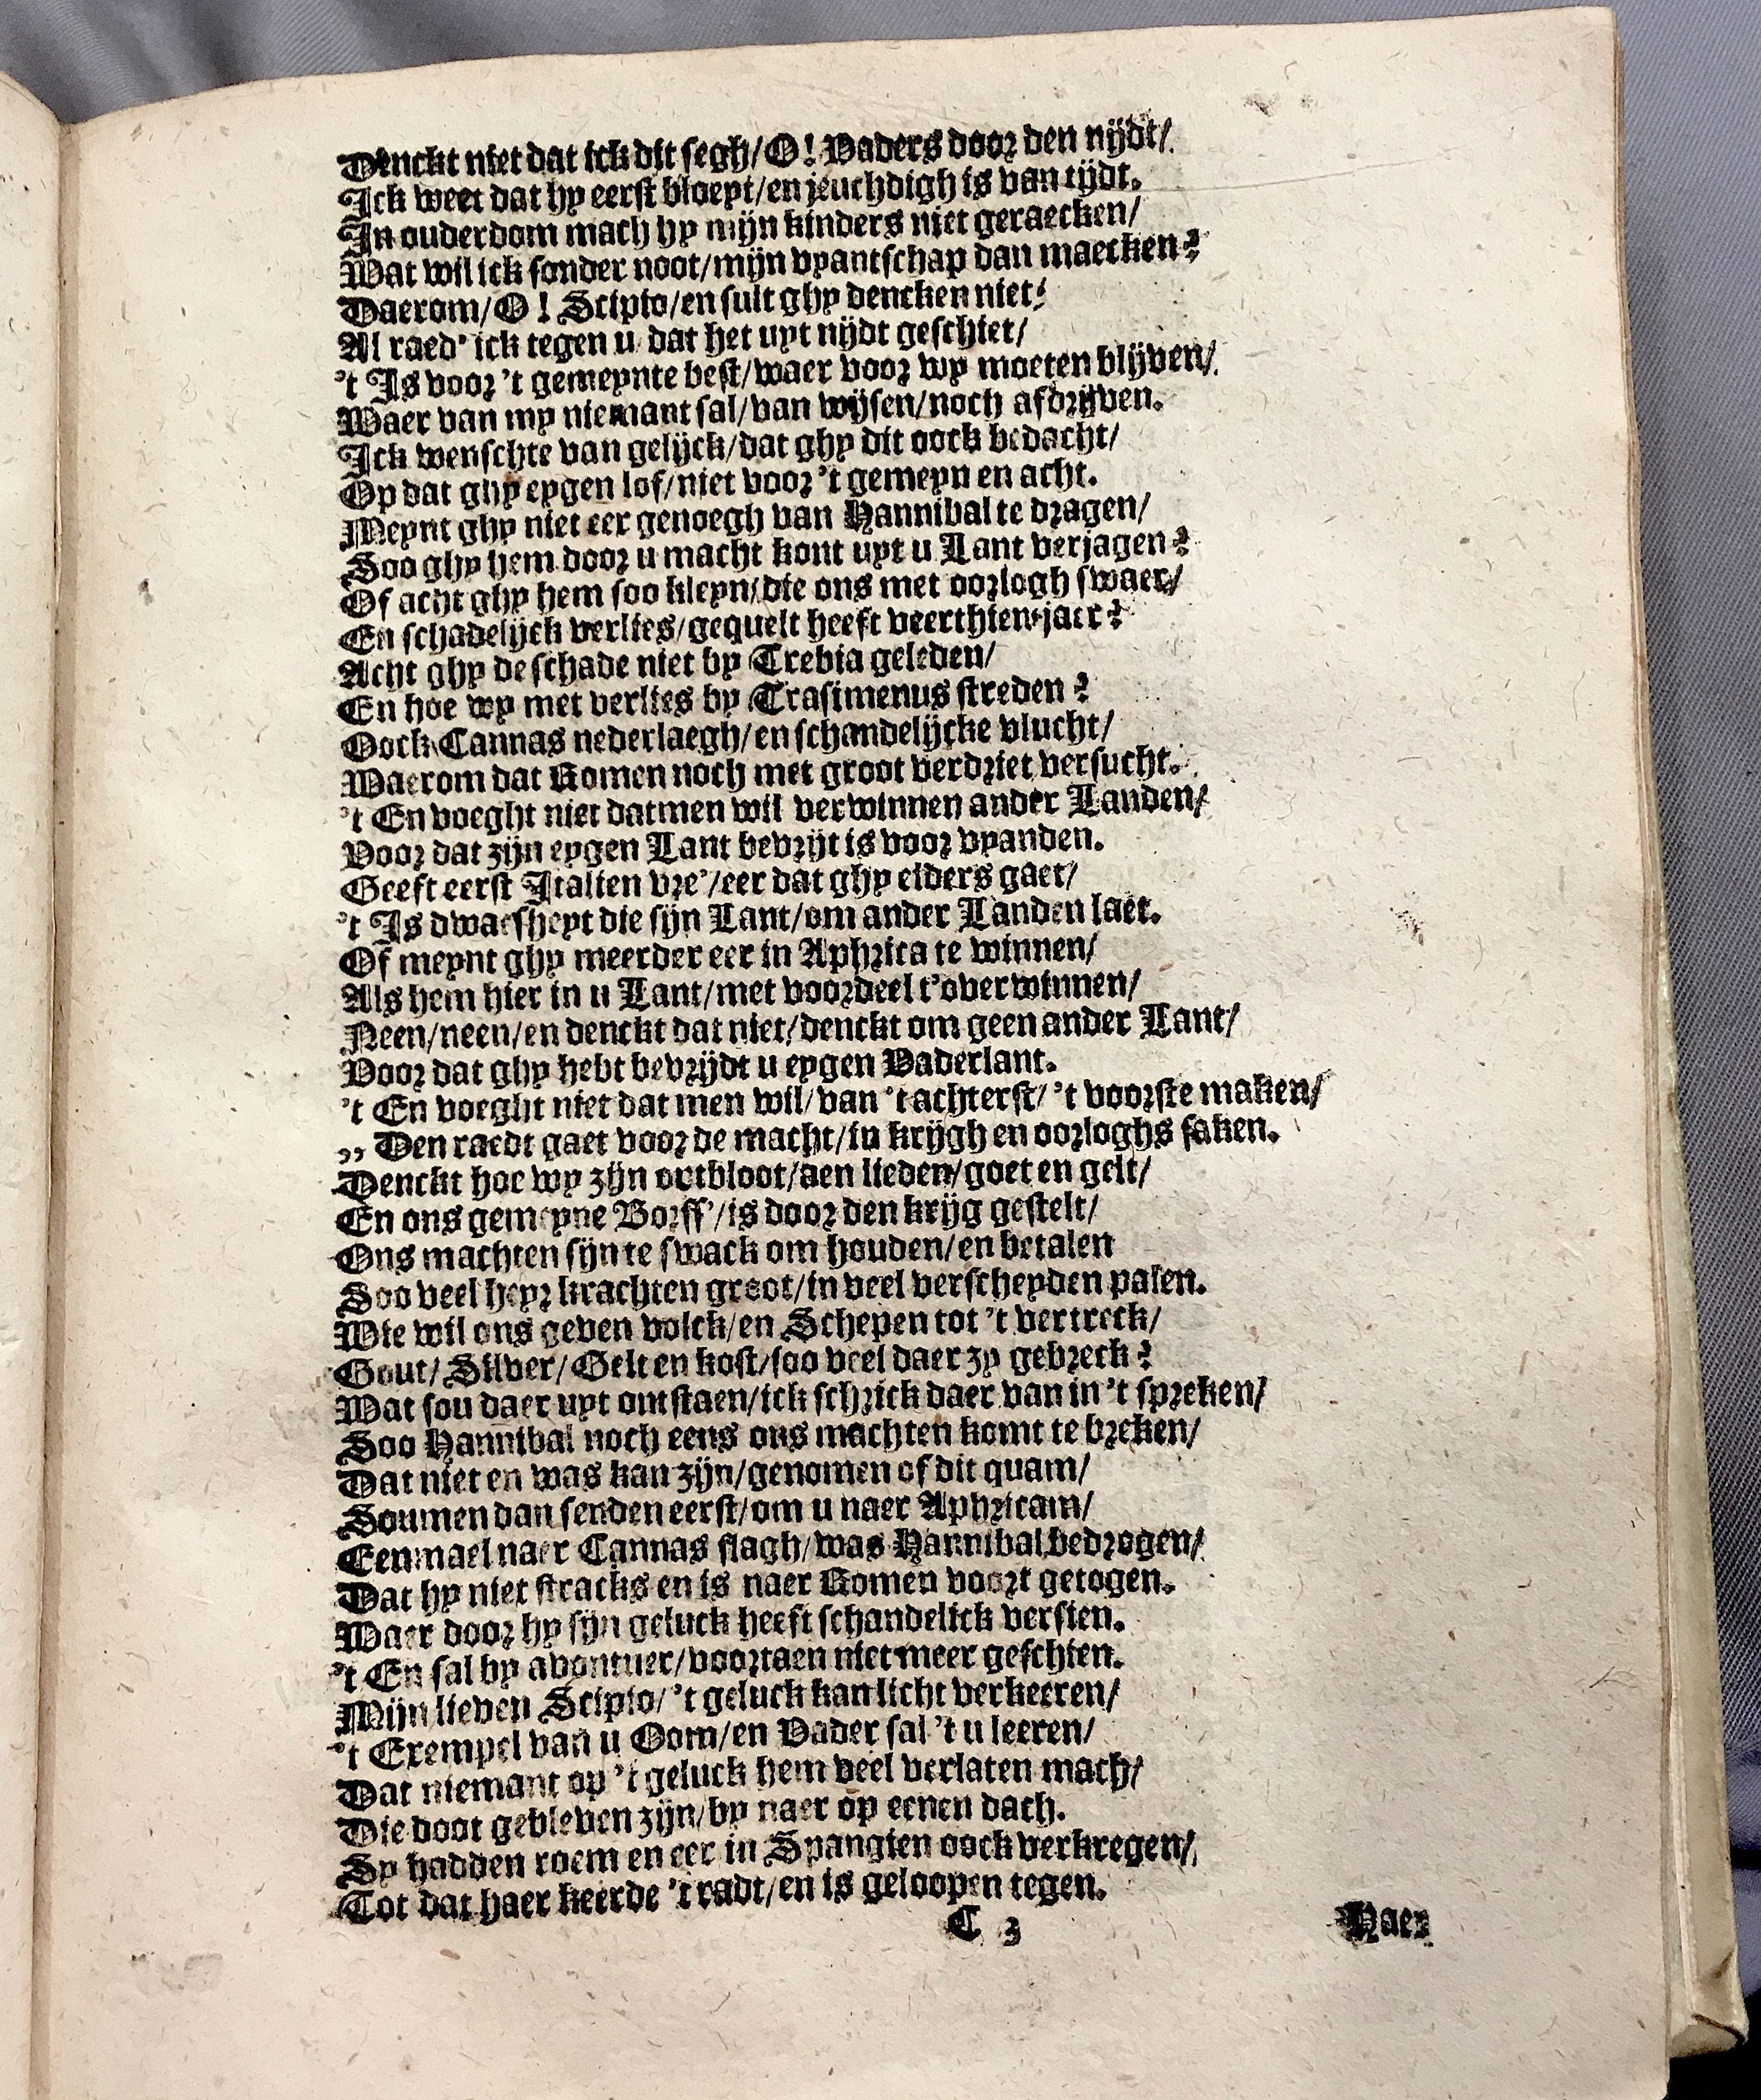 Denckt niet dat ick dit segh/O! Vaders door den nijdt/
Ick weet dat hy eerst bloeyt/en jeuchdigh is van tijdt.
In ouderdom mach hy mijn kinders niet geraecken/
Wat wil ick sonder noot/mijn vyantschap dan maecken?
Daerom/O! Scipio/en sult ghy dencken niet/
Al raed' ick tegen u/dat het uyt nijdt geschiet/
't Is voor 't gemeynte best/waer voor wy moeten blijven/
Waer van my niemant sal/van wijsen/noch afdrijven.
Ick wenschte van gelijck/dat ghy dit oock bedacht/
Op dat ghy eygen lof/niet voor 't gemeyn en acht.
Meynt ghy niet eer genoegh van Hannibal te dragen/
Soo ghy hem door u macht kont uyt u Lant verjagen?
Of acht ghy hem soo kleyn/die ons met oorlogh swaer/
En schadelijck verlies/gequelt heeft veerthien jaer?
Acht ghy de schade niet by Trebia geleden/
En hoe wy met verlies by Trasimenus streden?
Oock Cannas nederlaegh/en schandelijcke vlucht/
Waerom dat Romen noch met groot verdriet versucht.
't En voeght niet datmen wil verwinnen ander Landen/
Voor dat zijn eygen Lant bevrijt is voor vyanden.
Geeft eerst Italien vre'/eer dat ghy elders gaet/
't Is dwaesheyt die sijn Lant/om ander Landen laet.
Of meynt ghy meerder eer in Aphrica te winnen/
Als hem hier in u Lant/met voordeel t'overwinnen/
Neen/neen/en denckt dat niet/denckt om geen ander Lant/
Voor dat ghy hebt bevrijdt u eygen Vaderlant.
't En voeght niet dat men wil/van 't achterst/'t voorste maken/
„ Den raedt gaet voor de macht/in krijgh en oorloghs saken.
Denckt hoe wy zijn ontbloot/aen lieden/goet en gelt/
En ons gemeyne Borss'/is door den krijg gestelt/
Ons machten sijn te swack om houden/en betalen
Soo veel heyr krachten groot/in veel verscheyden palen.
Wie wil ons geven volck/en Schepen tot 't vertreck/
Gout/Silver/Gelt en kost/soo veel daer zy gebreck?
Wat sou daer uyt omstaen/ick schrick daer van in 't spreken/
Soo Hannibal noch eens ons machten komt te breken/
Dat niet en was kan zijn/genomen of dit quam/
Soumen dan senden eerst/om u naer Aphricam/
Eenmael naer Cannas slagh/was Hannibal bedrogen/
Dat hy niet stracks en is naer Romen voort getogen.
Waer door hy sijn geluck heeft schandelick versien.
't En sal by avontuer/voortaen niet meer geschien.
Mijn lieven Scipio/'t geluck kan licht verkeeren/
't Exempel van u Oom/en Vader sal 't u leeren/
Dat niemant op 't geluck hem veel verlaten mach/
Die doot gebleven zijn/by naer op eenen dach.
Sy hadden roem en eer in Spangien oock verkregen/
Tot dat haer keerde 't radt/en is geloopen tegen.
C 3
Haer